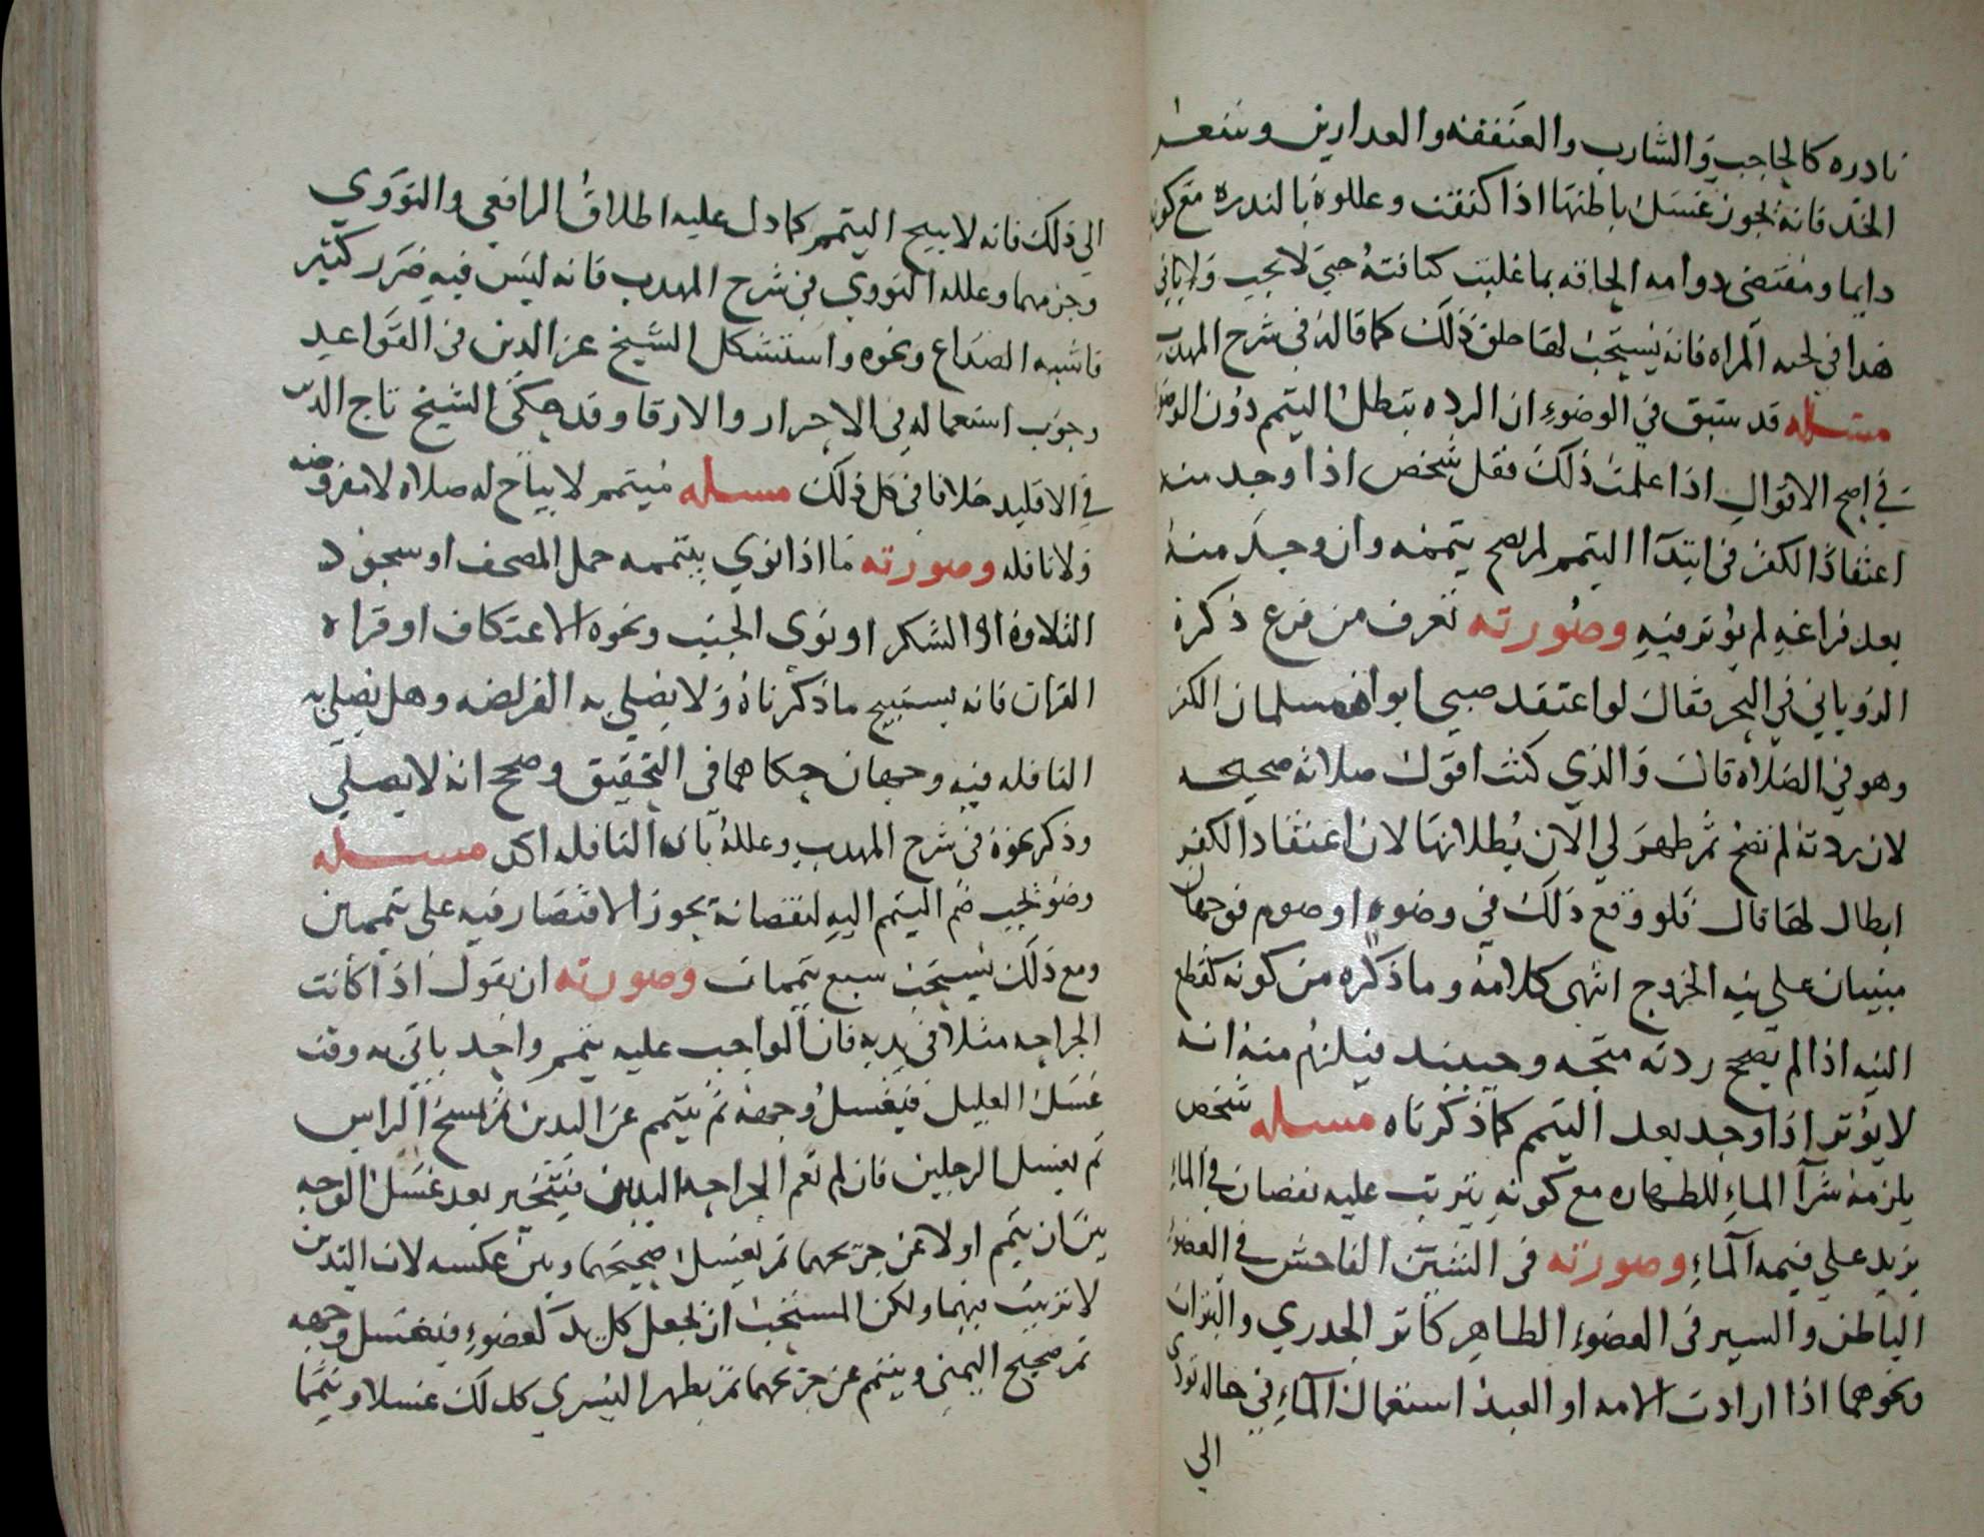 نادره كالحاجب والشارب والعنفقه والعدارين وشعر
الخد فانه يجوز غسل باطنها اذا كثفت وعللوه بالندره مع كون
دايما ومقتضى دوامه الحاقه بما غلبت كثافته حتى لا يجب
هذا في لحيه المراه فانه يستحب لها حلق ذلك كما قاله في شرح المهدب
مسله قد سبق في الوضوء ان الرده تبطل التيمم دون الوضو
في اصح الاقوال اذا علمت ذلك فقل شخص اذا وجد منه
اعتقاد الكفر في ابتدآ التيمم لم يصح تيممه وان وجد منه
بعد فراغه لم يؤثر فيه وصورته تعرف من فرع ذكره
الروياني في البحر فقال لو اعتقد صبي ابواه مسلمان الكفر
وهو في الصلاه قال والذي كنت اقول صلاته صحيحه
لان ردته لم تصح ثم ظهر لي الان بطلانها لان اعتقاد الكفر
ابطال لها قال فلو وقع ذلك في وضوء او صوم فوجهان
مبنيان على نيه الخروج انتهى كلامه وما ذكره من كونه كقطع
النيه اذا لم تصح ردته متجه وحينيد فيلزم منه انه
لا يؤثر اذا وجد بعد التيمم كما ذكرناه مسله شخص
يلزمه شرآ الماء للطهاره مع كونه يترتب عليه نقصان في الماء
يزيد على قيمه الماء وصورته في الشين الفاحش في العضو
الباطن واليسير في العضوء الظاهر كاثر الجدري والبثرات
ونحوهما اذا ارادت الامه او العبد استعمال الماء في حاله تودى
الي
الي ذلك فانه لا يبيح التيمم كما دل عليه اطلاق الرافعي والنووي
وجزمهما وعلله النووي في شرح المهدب فانه ليس فيه ضرر كثير
فاشبه الصداع ونحوه واستشكل الشيخ عز الدين في القواعد
وجوب استعماله في الاحرار والارقا وقد حكى الشيخ تاج الدين
في الاقليد خلافا في كل ذلك مسله متيمم لا يباح له صلاه لا مفروضه
ولا نافله وصورته ما اذا نوي بتيممه حمل المصحف او سجود
التلاوه او الشكر او نوى الجنب ونحوه الاعتكاف او قراه
القران فانه يستبيح ما ذكرناه ولا يصلي به الفريضه وهل يصلي به
النافله فيه وجهان حكاهما في التحقيق وصحح انه لا يصلي
وذكر نحوه في شرح المهدب وعلله بان النافله اكد مسله
وضو يجب ضم التيمم اليه لنقصانه يجوز الاقتصار فيه على تيممين
ومع ذلك يستحب سبع تيممات وصورته ان يقول اذا كانت
الجراحه مثلا في يديه فان الواجب عليه تيمم واحد ياتي به وقت
غسل العليل فيغسل وجهه ثم يتيمم عن اليدين ثم يمسح الراس
ثم يغسل الرجلين فان لم تعم الجراحه اليدين فيتخير بعد غسل الوجه
بين ان يتيمم اولا عن جريحهما ثم يغسل صحيحهما وبين عكسه لان اليدين
لا ترتيب فيهما ولكن المستحب ان يجعل كل يد كعضوء فيغسل وجهه
ثم صحيح اليمنى ويتيمم عن جريحهما ثم يطهر اليسري كذلك غسلا وتيمما